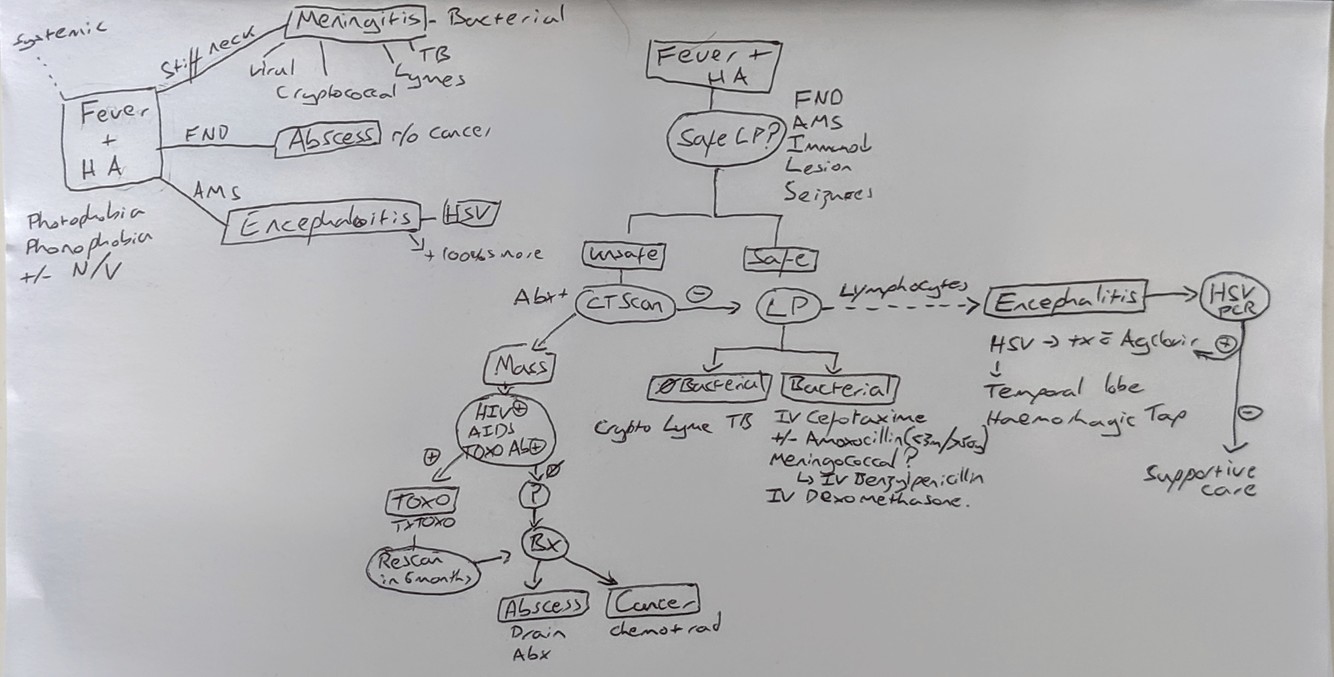 Systemic
Stiff neck
Meningitis - Bacterial
Viral
Cryptococcal
TB
Lymes
Fever
+
HA
FND
Abscess r/o Cancer
AMS
Encephaloitis - HSV
+ 1000%s more
Photophobia
Phonophobia
+/- N/V
Fever +
HA
Safe LP?
FND
AMS
Immunod
Lesion
Seizures
Unsafe
Safe
Abx+
CT Scan
⊖
LP
Lymphocytes
Encephalitis
HSV
PCR
HSV → tx = Agclovir
⊕
↓
Temporal lobe
Haemorhagic Tap
⊖
Supportive
care
Mass
HIV⊕
AIDS
TOXO Ab⊕
⊕
Ø
TOXO
TxTOXO
Rescan
in 6 months
?
Bx
Abscess
Drain
Abx
Cancer
Chemo + rad
ØBacterial
Crypto Lyme TB
Bacterial
IV Cefotaxime
+/- Amoxocillin(<3m/>50y)
Meningococcal?
↳ IV Benzylpenicillin
IV Dexomethasone.